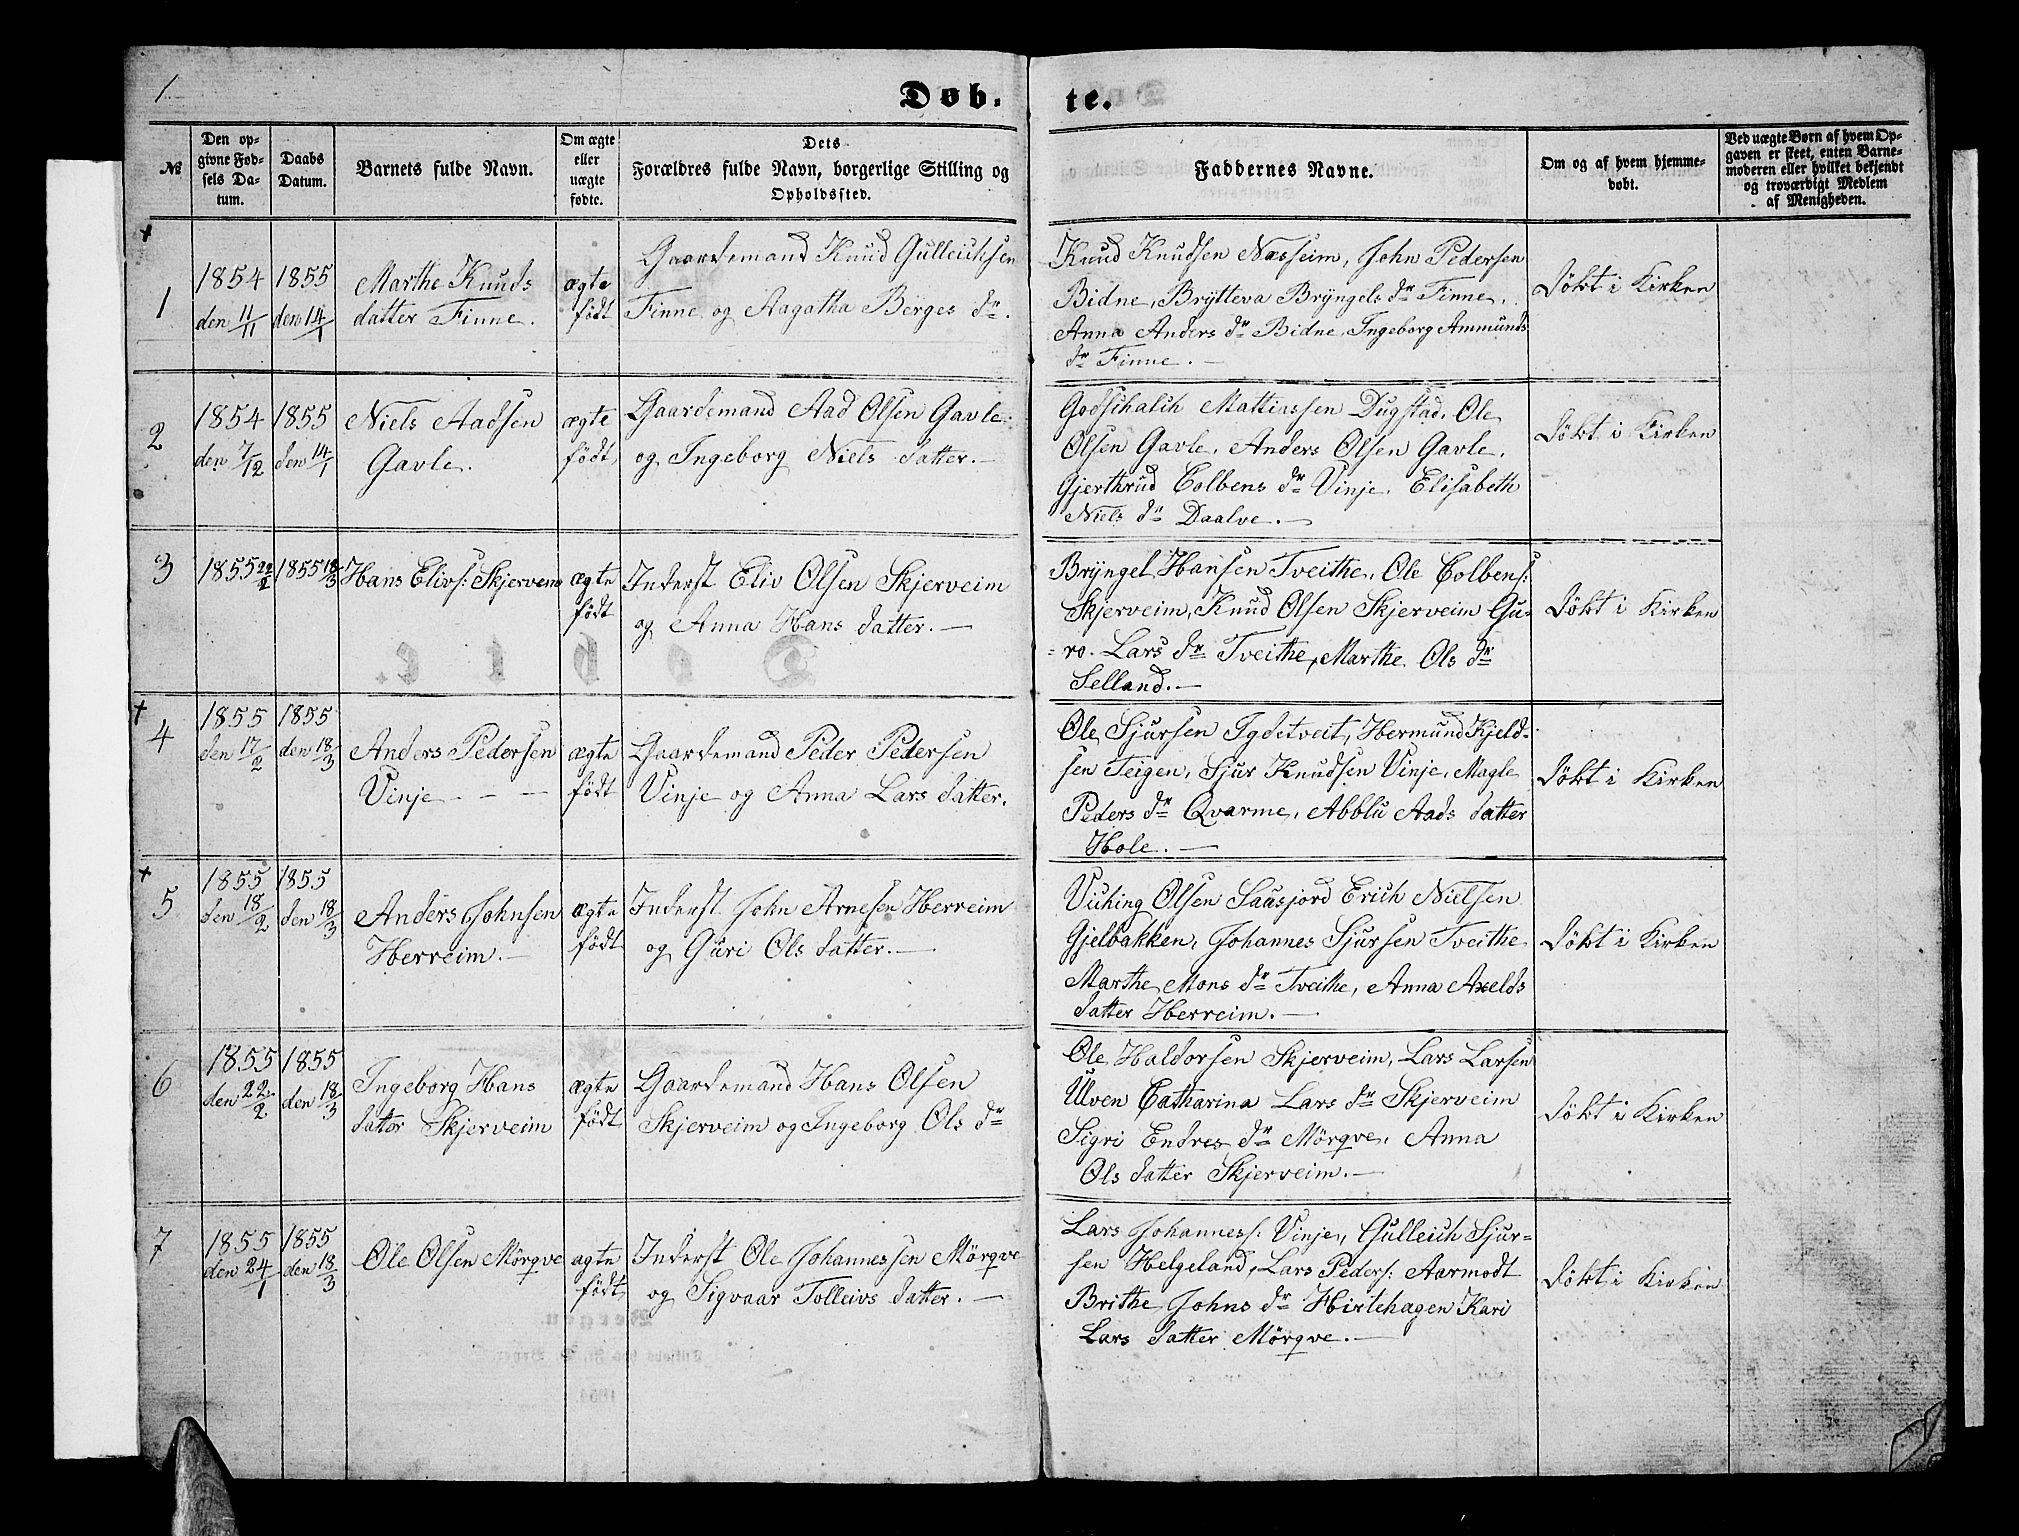 1
Døb- te.
№
Den op-
givne Fød-
sels Da-
tum.
Daabs
Datum.
Barnets fulde Navn.
Om ægte
eller
uægte
fødte.
Dets
Forældres fulde Navn, borgerlige Stilling og
Opholdssted.
Faddernes Navne.
Om og af hvem hjemme-
døbt.
Ved uægte Børn af hvem Op-
gaven er skeet, enten Barne-
moderen eller hvilket bekjendt
og troværdigt Medlem
af Menigheden.
+
1
1854
den 11/11
1855
den 14/1
Marthe Knuds
datter Finne.
ægte
født
Gaardemand Knud Gulleichsen
Finne og Aagatha Berges dr.
Knud Knudsen Næsheim, John Pedersen
Bidne, Brytteva Bryngels dr Finne,
Anna Anders dr Bidne, Ingeborg Ammunds
dr Finne. —
Døbt i Kirken
2
1854
den 7/12
1855
den 14/1
Niels Aadsen
Gavle.
ægte
født
Gaardemand Aad Olsen Gavle
og Ingeborg Niels datter. —
Godschalch Mathiassen Dugstad, Ole
Olsen Gavle, Anders Olsen Gavle,
Gjerthrud Colbens dr Vinje, Elisabeth
Niels dr Daalve. —
Døbt i Kirken
3
1855 22/2
1855 18/3
Hans Elivs: Skjerveim
ægte
født
Inderst Eliv Olsen Skjerveim
og Anna Hans datter. —
Bryngel Hansen Tveithe, Ole Colbens:
Skjerveim, Knud Olsen Skjerveim Gu-
-ro Lars dr Tveithe, Marthe Ols dr
Selland. —
Døbt i Kirken
+
4
1855
den 17/2
1855
den 18/3
Anders Pedersen
Vinje — — —
ægte
født
Gaardemand Peder Pedersen
Vinje og Anna Lars datter.
Ole Sjursen Tgdetveit, Hermund Kjeld-
sen Teigen, Sjur Knudsen Vinje, Magle
Peders dr Qvarme, Abblu Aads datter
Hole. —
Døbt i Kirken
+
5
1855
den 18/2
1855
den 18/3
Anders Johnsen
Herreim. —
ægte
født
Inderst John Arnesen Herreim
og Guri Ols datter. —
Viching Olsen Saasjord Erich Nielsen
Gjelbakken, Johannes Sjursen Tveithe
Marthe Mons dr Tveithe, Anna Axelds
datter Herreim. —
Døbt i Kirken
6
1855
den 22/2
1855
den 18/3
Ingeborg Hans
datter Skjerveim
ægte
født
Gaardemand Hans Olsen
Skjerveim og Ingeborg Ols dr
Ole Haldorsen Skjerveim, Lars Larsen
Ulven Catharina Lars dr Skjerveim
Sigri Endres dr Mörqve, Anna
Ols datter Skjerveim. —
Døbt i Kirken
7
1855
den 24/1
1855
den 18/3
Ole Olsen Mörqve
ægte
født
Inderst Ole Johannessen Mörqve
og Sigvaar Tolleivs datter. —
Lars Johanness: Vinje, Gulleich Sjur-
sen Helgeland, Lars Peders: Aarmodt
Brithe Johns dr Hirtehagen Kari
Lars datter Mörqve. —
Døbt i Kirken